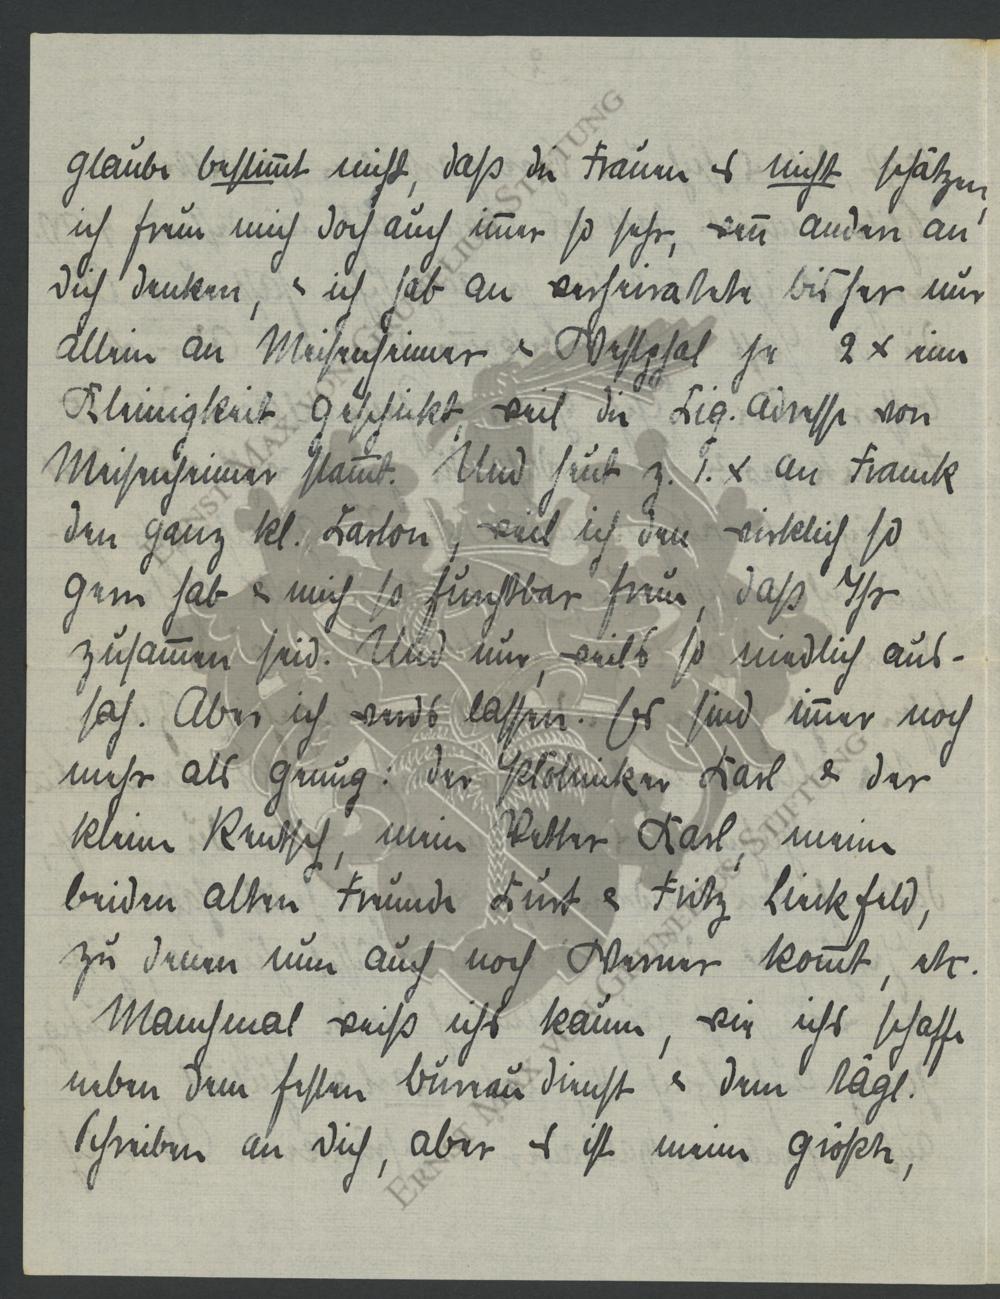 glaube bestim̄t nicht, daß die Frauen es nicht schätzen,
ich freue mich doch auch im̄er so sehr, wen̄ andere an
Dich denken, & ich hab an verheiratete bisher nur
allein an Meisenheimer & Westphal je 2 x eine
Kleinigkeit geschickt, weil die Zig. Adresse von
Meisenheimer stam̄t. Und heut z. 1. x an Franck
den ganz kl. Karton, weil ich den wirklich so
gern hab & mich so furchtbar freue, daß Ihr
zusam̄en seid. Und nur, weils so niedlich aus-
sah. Aber ich werds lassen. Es sind im̄er noch
mehr als genug: der Karl & der
kleine Rentsch, mein Vetter Karl, meine
beiden alten Freunde Kurt & Fritz Linckfeld,
zu denen nun auch noch Werner kom̄t, etc.
Manchmal weiß ichs kaum, wie ichs schaffe
neben dem festen bureau dienst & dem tägl.
Schreiben an Dich, aber es ist meine größte,
ERNST MAX VON GRUNELIUS-STIFTUNG
ERNST MAX VON GRUNELIUS-STIFTUNG